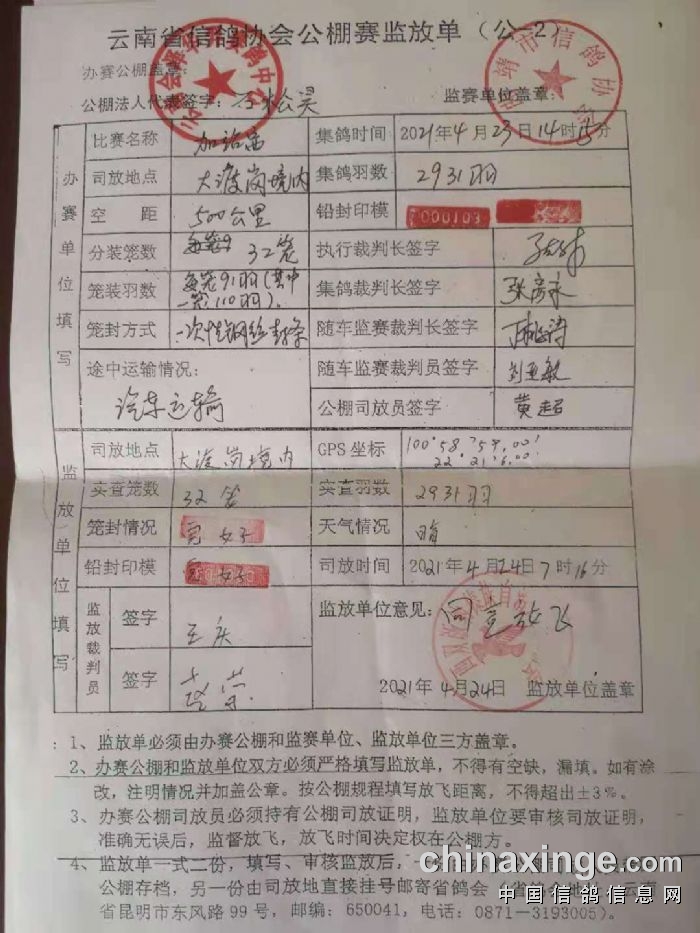 云南省信鸽协会公棚赛监放单（公-2）
办赛公棚盖章：
公棚法人代表签字： 监赛单位盖章：
曲靖市信鸽协会
办赛单位填写
比赛名称 加站赛 集鸽时间 2021年4月23日14时15分
司放地点 大渡岗境内 集鸽羽数 2931羽
空距 500公里 铅封印模 000103
分装笼数 32笼 执行裁判长签字
笼装羽数 每笼91羽(其中一笼110羽). 集鸽裁判长签字 张彦永
笼封方式 一次性钢丝封条 随车监赛裁判长签字
途中运输情况： 随车监赛裁判员签字 刘亚敏
汽车运输 公棚司放员签字 黄超
监放单位填写
司放地点 大渡岗境内 GPS坐标 100°58′59.00″
22°21′6.00″
实查笼数 32笼 实查羽数 2931羽
笼封情况 完好 天气情况 晴
铅封印模 完好 司放时间 2021年4月24日7时16分
监放裁判员
签字 王庆 监放单位意见： 同意放飞
签字 2021年4月24日 监放单位盖章
1、监放单必须由办赛公棚和监赛单位、监放单位三方盖章。
2、办赛公棚和监放单位双方必须严格填写监放单，不得有空缺，漏填。如有涂
改，注明情况并加盖公章。按公棚规程填写放飞距离，不得超出±3%。
3、办赛公棚司放员必须持有公棚司放证明，监放单位要审核司放证明，
准确无误后，监督放飞，放飞时间决定权在公棚方。
4、监放单一式二份，填写、审核监放后，一
公棚存档，另一份由司放地直接挂号邮寄省鸽会
省昆明市东风路99号，邮编：650041，电话：0871-3193005)。
chinaxinge.com
中国信鸽信息网